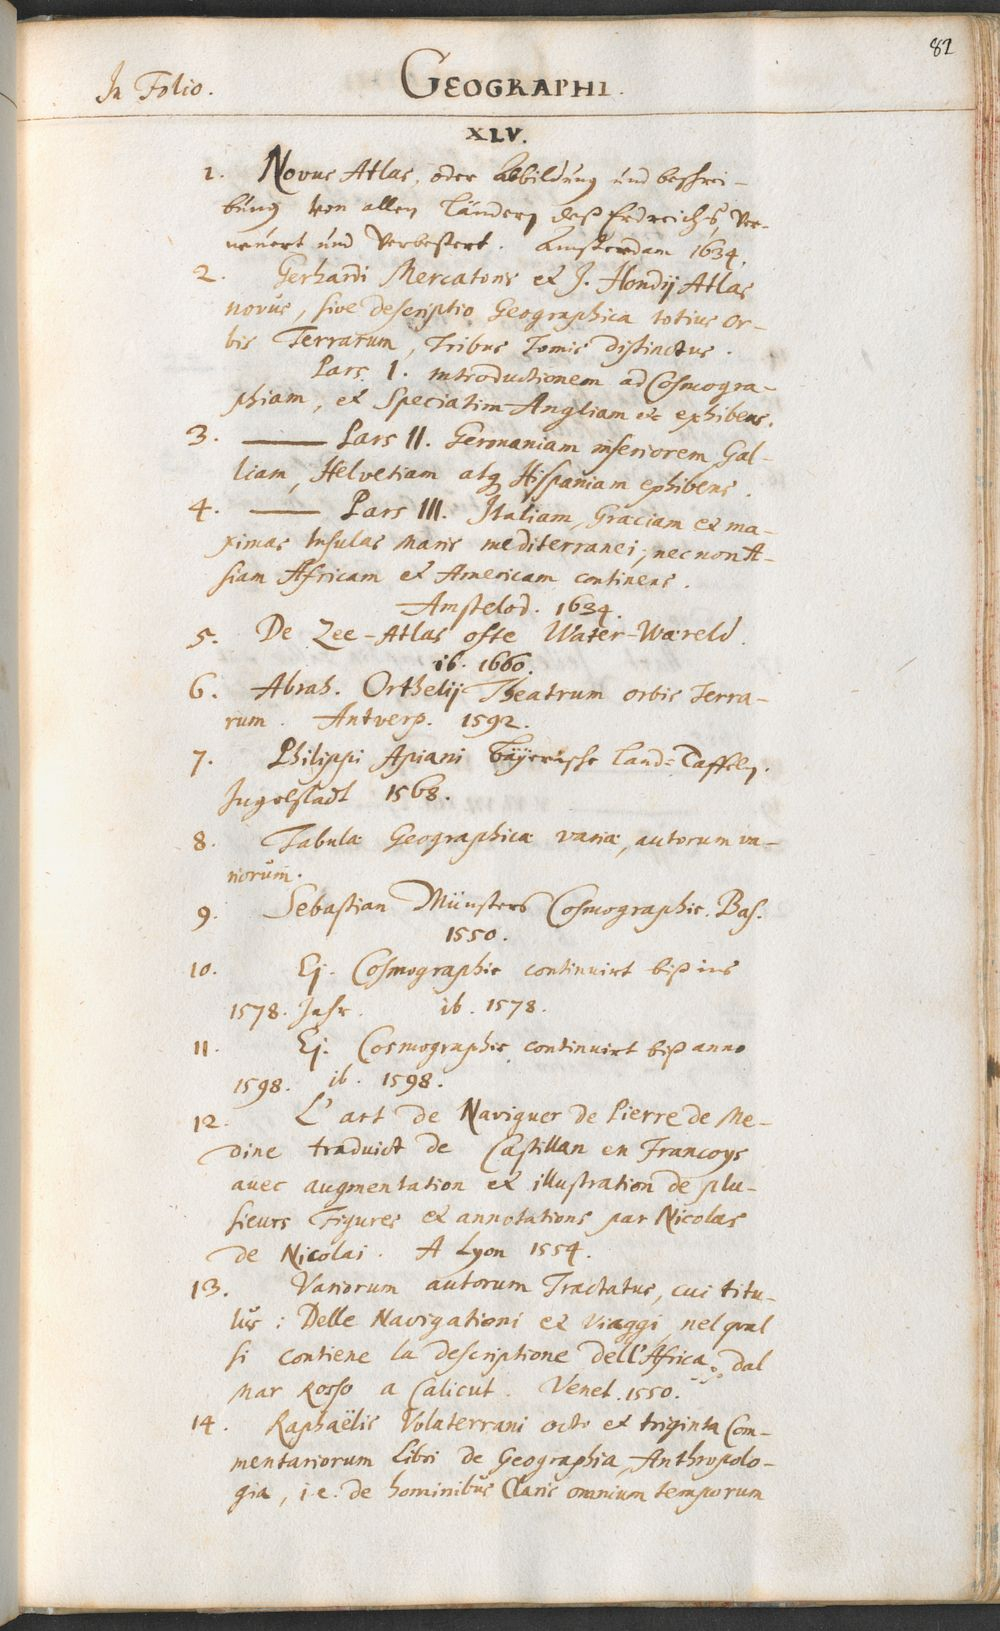 82
In Folio. GEOGRAPHI.
XLV.
1. Novus Atlas, oder Abbildung und beschrei-
bung von allen Ländern deß Erdreichs, Ver-
neüert und Verbeßert. Amsterdam 1634.
2. Gerhardi Mercatoris et J. Hondij Atlas
novus, sive descriptio Geographica totius Or-
bis Terrarum, Tribus Tomis distinctus.
Pars I. introductionem ad Cosmogra-
phiam, et Speciatim Angliam etc exhibens.
3. ——— Pars II. Germaniam inferiorem Gal-
liam, Helvetiam atq Hispaniam exhibens.
4. ——— Pars III. Italiam, Graciam et ma-
ximas Insulas Maris mediterranei, necnon A-
siam Africam et Americam continens.
Amstelod. 1634.
5. De Zee-Atlas ofte Water-Wæreld.
ib. 1660.
6. Abrah. Orthelij Theatrum orbis Terra-
rum. Antverp. 1592.
7. Philippi Apiani Bayerische Land-Taffeln.
Ingolstadt 1568.
8. Tabulæ Geographicæ variæ, autorum va-
riorum.
9. Sebastian Münsters Cosmographie. Bas.
1550.
10. Ej. Cosmographie continuirt biß ins
1578. Jahr. ib. 1578.
11. Ej. Cosmographie continuirt biß anno
1598. ib. 1598.
12. L'art de Naviguer de Pierre de Me-
dine traduict de Castillan en Francoys
avec augmentation et illustration de plu-
sieurs Figures et annotations par Nicolas
de Nicolai. A Lyon 1554.
13. Variorum autorum Tractatus, cui titu-
lus: Delle Navigationi et Viaggi, nel qual
si contiene la descriptione dell'Africa, dal
Mar Rosso a Calicut. Venet. 1550.
14. Raphaëlis Volaterrani octo et triginta Com-
mentariorum Libri de Geographia, Anthropolo-
gia, i.e. de hominibus Claris omnium temporum